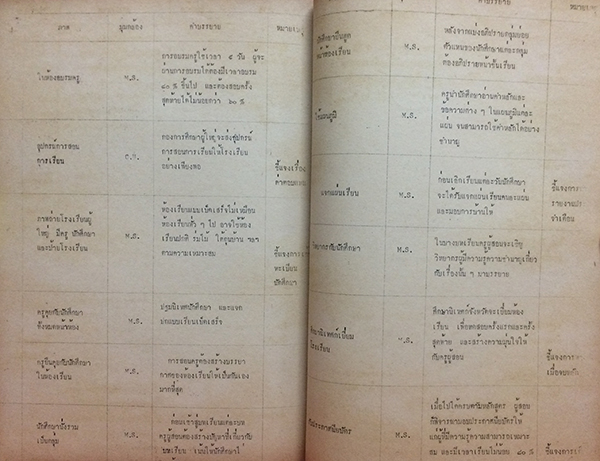 ภาพ
มุมกล้อง
คำบรรยาย
หมายเหตุ
ในห้องอบรมครู
M.S.
การอบรมครูใช้เวลา ๕ วัน ผู้จะ
ผ่านการอบรมได้ต้องมีเวลาอบรม
๘๐ % ขึ้นไป และต้องสอบครั้ง
สุดท้ายได้ไม่น้อยกว่า ๖๐ %
อุปกรณ์การสอน
การเรียน
กองการศึกษาผู้ใหญ่จะส่งอุปกรณ์
การสอนการเรียนให้โรงเรียน
อย่างเพียงพอ
ชี้แจงเรื่อง
ภาพถ่ายโรงเรียนผู้
ใหญ่ มีครู นักศึกษา
และป้ายโรงเรียน
M.S.
ห้องเรียนแบบเบ็ดเสร็จไม่เหมือน
ห้องเรียนทั่ว ๆ ไป อาจใช้ห้อง
เรียนปกติ ร่มไม้ ใต้ถุนบ้าน ฯลฯ
ตามความเหมาะสม
ชี้แจงการ
ทะเบียน
นักศึกษา
ครูคุยกับนักศึกษา
M.S.
ปฐมนิเทศนักศึกษา และแจก
บทแบบเรียนเบ็ดเสร็จ
ครูยืนคุยกับนักศึกษา
ในห้องเรียน
M.S.
การสอนครูต้องสร้างบรรยา
กาศของห้องเรียนให้เป็นกันเอง
มากที่สุด
นักศึกษานั่งรวม
เป็นกลุ่ม
M.S.
ก่อนเข้าสู่บทเรียนแต่ละบท
ครูผู้สอนต้องสร้างปัญหาที่เกี่ยวกับ
บทเรียน
คำบรรยาย
M.S.
หลังจากแบ่งอภิปรายกลุ่มย่อย
ตัวแทนของนักศึกษาแต่ละกลุ่ม
ต้องอภิปรายหน้าชั้นเรียน
M.S.
ครูนำนักศึกษาอ่านคำหลักและ
ข้อความต่าง ๆ ในแผนภูมิแต่ละ
แผ่น จนสามารถใช้คำหลักได้อย่าง
ชำนาญ
แจกแผ่นเรียน
M.S.
ก่อนเลิกเรียนแต่ละวันนักศึกษา
จะได้รับแจกแผ่นเรียนคนละแผ่น
และมอบการบ้านให้
ชี้แจงการ
ประจำเดือน
วิทยากรกับนักศึกษา
M.S.
ในบางบทเรียนครูผู้สอนจะเชิญ
วิทยากรผู้มีความรู้ความชำนาญเกี่ยว
กับเรื่องนั้น ๆ มาบรรยาย
ศึกษานิเทศก์เยี่ยม
โรงเรียน
M.S.
ศึกษานิเทศก์จังหวัดจะเยี่ยมห้อง
เรียน เพื่อทดสอบครั้งแรกและครั้ง
สุดท้าย และสร้างความมั่นใจให้
กับครูผู้สอน
ชี้แจงการ
M.S.
เมื่อไปได้ครบตามหลักสูตร ผู้สอน
ก็พิจารณามอบประกาศนียบัตรให้
แก่ผู้ที่มีความรู้ความสามารถเหมาะ
สม และมีเวลาเรียนไม่น้อย ๘๐ %
ชี้แจงการ